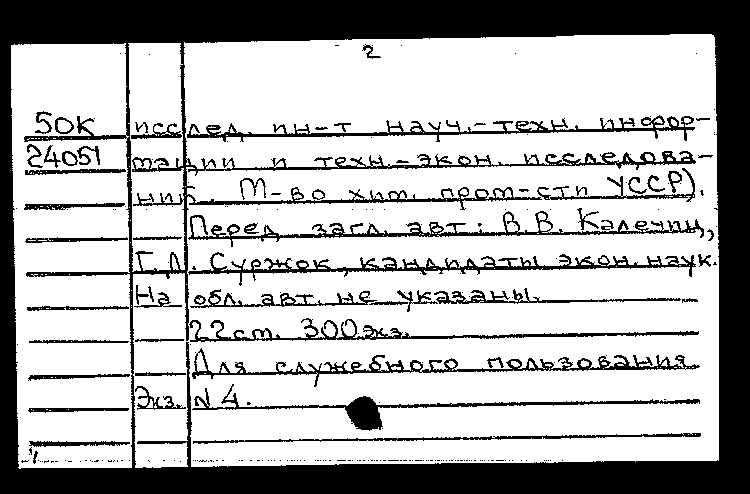 2
50К исслед. ин-т науч.-техн. инфор-
24051 мации и техн.-экон. исследова-
ний. М-во хим. пром-сти УССР).
Перед загл. авт: В.В. Калечиц,
Г.Л. Суржок, кандидаты экон. наук.
На обл. авт. не указаны.
22см. 300экз.
Для служебного пользования
Экз. N 4.